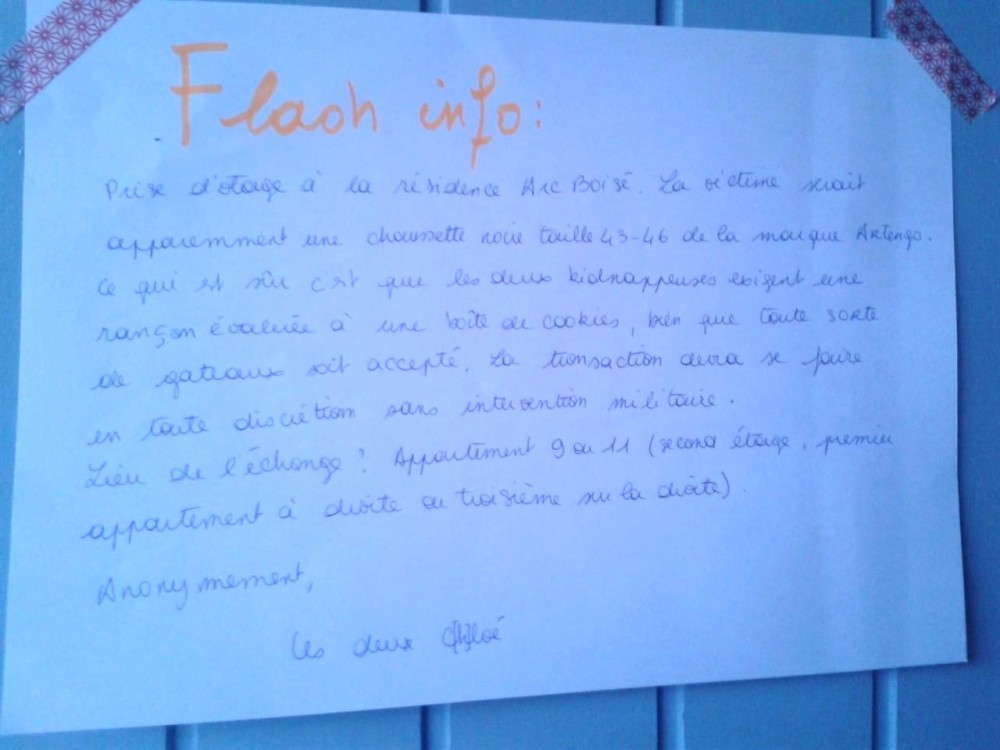 Flash info :
Prise d'otage à la résidence Arc Boisé. La victime serait
apparemment une chaussette noire taille 43-46 de la marque Artengo.
Ce qui est sûr c'est que les deux kidnappeuses exigent une
rançon évaluée à une boîte de cookies, bien que toute sorte
de gateaux soit accepté. La transaction devra se faire
en toute discrétion sans intervention militaire.
Lieu de l'échange : Appartement 9 ou 11 (second étage, premier
appartement à droite ou troisième sur la droite).
Anonymement,
Les deux Chloé